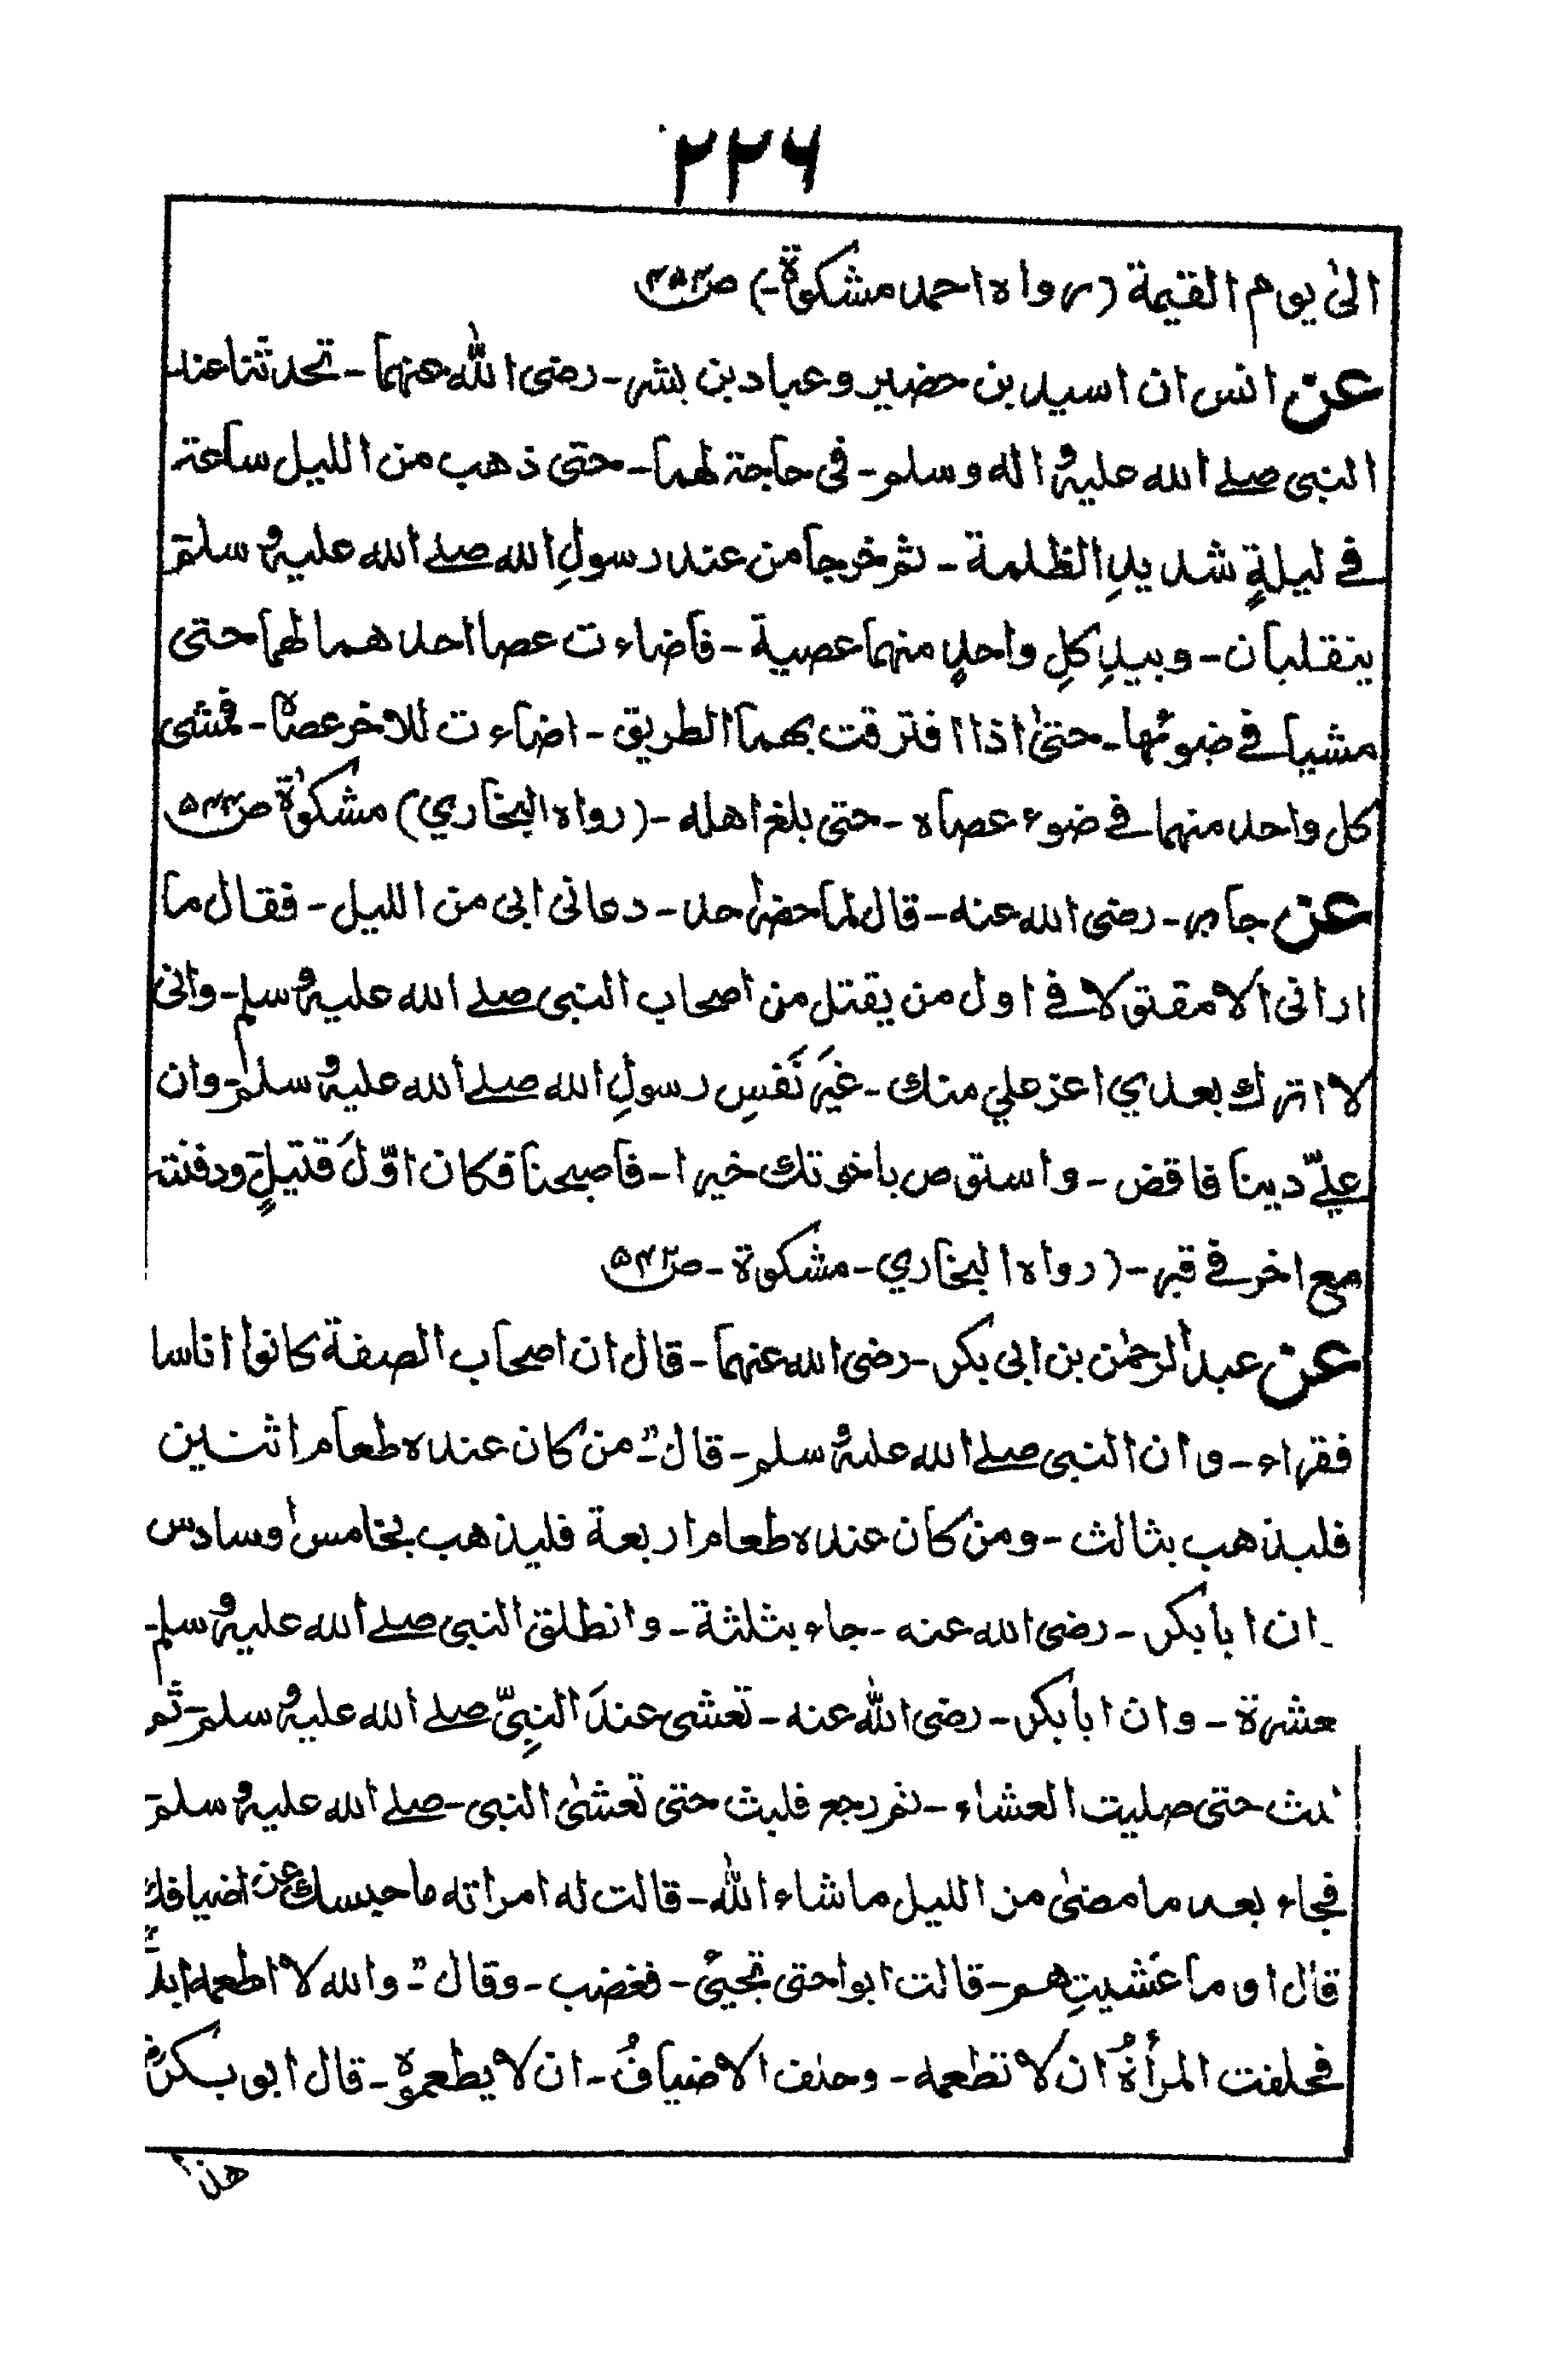 ۲۲۶
الىٰ يوم القيٰمة (رواه احمد مشكوٰة-) ص۴۵۳
عن انس ان اسيد بن حضير وعباد بن بشر- رضى اللّٰه عنهما- تحدثنا عند
النبى صلے الله عليه و اله وسلم- فى حاجة لهما- حتى ذهب من الليل ساعة
فے ليلةٍ شديدِ الظلمة- ثم خرجا من عند رسولِ الله صلے الله عليه و سلم
ينقلبان- وبيدِ كلِ واحدٍ منهما عصية- فأضاءت عصا احدهما لهما حتى
مشيا فے ضوئها- حتىٰ اذا افترقت بهما الطريق- اضاءت للاخر عصاه- فمشى
كل واحد منهما فے ضوء عصاه- حتى بلغ اهله- (رواه البخاري) مشكوٰة ص۵۴۴
عن جابر- رضى الله عنه- قال لما حضر احد- دعانى ابى من الليل- فقال ما
ارانى الا مقتولا فے اول من يقتل من اصحاب النبى صلے الله عليه و سلم- وانى
لا اترك بعدي اعز علي منك- غيرَ نَفسِ رسولِ الله صلے الله عليه و سلم- وان
عليّ دينا فاقض- واستوص باخوتك خيرا- فأصبحنا فكان اوّلَ قتيلٍ ودفنته
مع اخر فے قبر- (رواه البخاري- مشكوة- ص۵۴۲
عن عبد الرحمٰن بن ابى بكر- رضى الله عنهما- قال ان اصحاب الصفة كانوا اناسا
فقراء- وان النبى صلے الله عليه و سلم- قال "- من كان عنده طعام اثنين
فليذهب بثالث- ومن كان عنده طعام اربعة فليذهب بخامس اوسادس
ان ابابكر- رضى الله عنه- جاء بثلثة- وانطلق النبى صلے الله عليه و سلم-
عشرة- وان ابابكر- رضى اللّٰه عنه- تعشى عندَ النبِىّ صلے الله عليه و سلم- ثم
لبث حتى صليت العشاء- ثم رجع فلبث حتى تعشىٰ النبى- صلے الله عليه و سلم
فجاء بعد ما مضىٰ من الليل ماشاء اللّٰه- قالت له امراته ما حبسك عن اضيافك
قال او ما عَشيتِهم- قالت ابوا حتى تجيئ- فغضب- وقال "- والله لا اطعمه ابدا
فحلفت المرأةُ ان لا تطعمه- وحلف الاضيافُ- ان لا يطعموه- قال ابو بكر رض
هذا